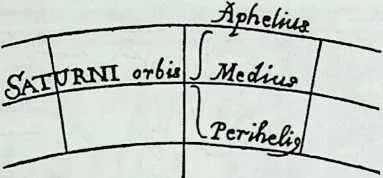 Aphelius
SATURNI orbis Medius
Periheliꝰ